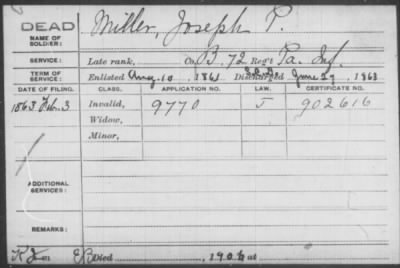 DEAD
NAME OF SOLDIER: Miller, Joseph P.
SERVICE: Late rank, Co. B. 72 Reg't Pa. Inf.
TERM OF SERVICE: Enlisted Aug. 10, 1861 Discharged June 27, 1863
DATE OF FILING. CLASS. APPLICATION NO. LAW. CERTIFICATE NO.
1863 Feb. 3 Invalid, 9770 J 902616
Widow,
Minor,
ADDITIONAL SERVICES:
REMARKS:
Died 190 at